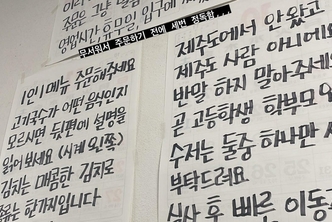 주문은 그냥
영업시간, 휴무일, 입구에
무서워서 주문하기 전에 세번 정독함...
1인 1메뉴 주문해주세요
고기국수가 어떤 음식인지
모르시면 뒷편에 설명을
읽어보세요 (시계 있는쪽)
김치는 매콤한 김치로
종류는 한가지입니다
제주도에서 안 왔고
제주도 사람 아니에요
반말 하지 말아주세요
곧 고등학생 학부모
수저는 둘중 하나만
부탁드려요
식사 후 빠른 이동